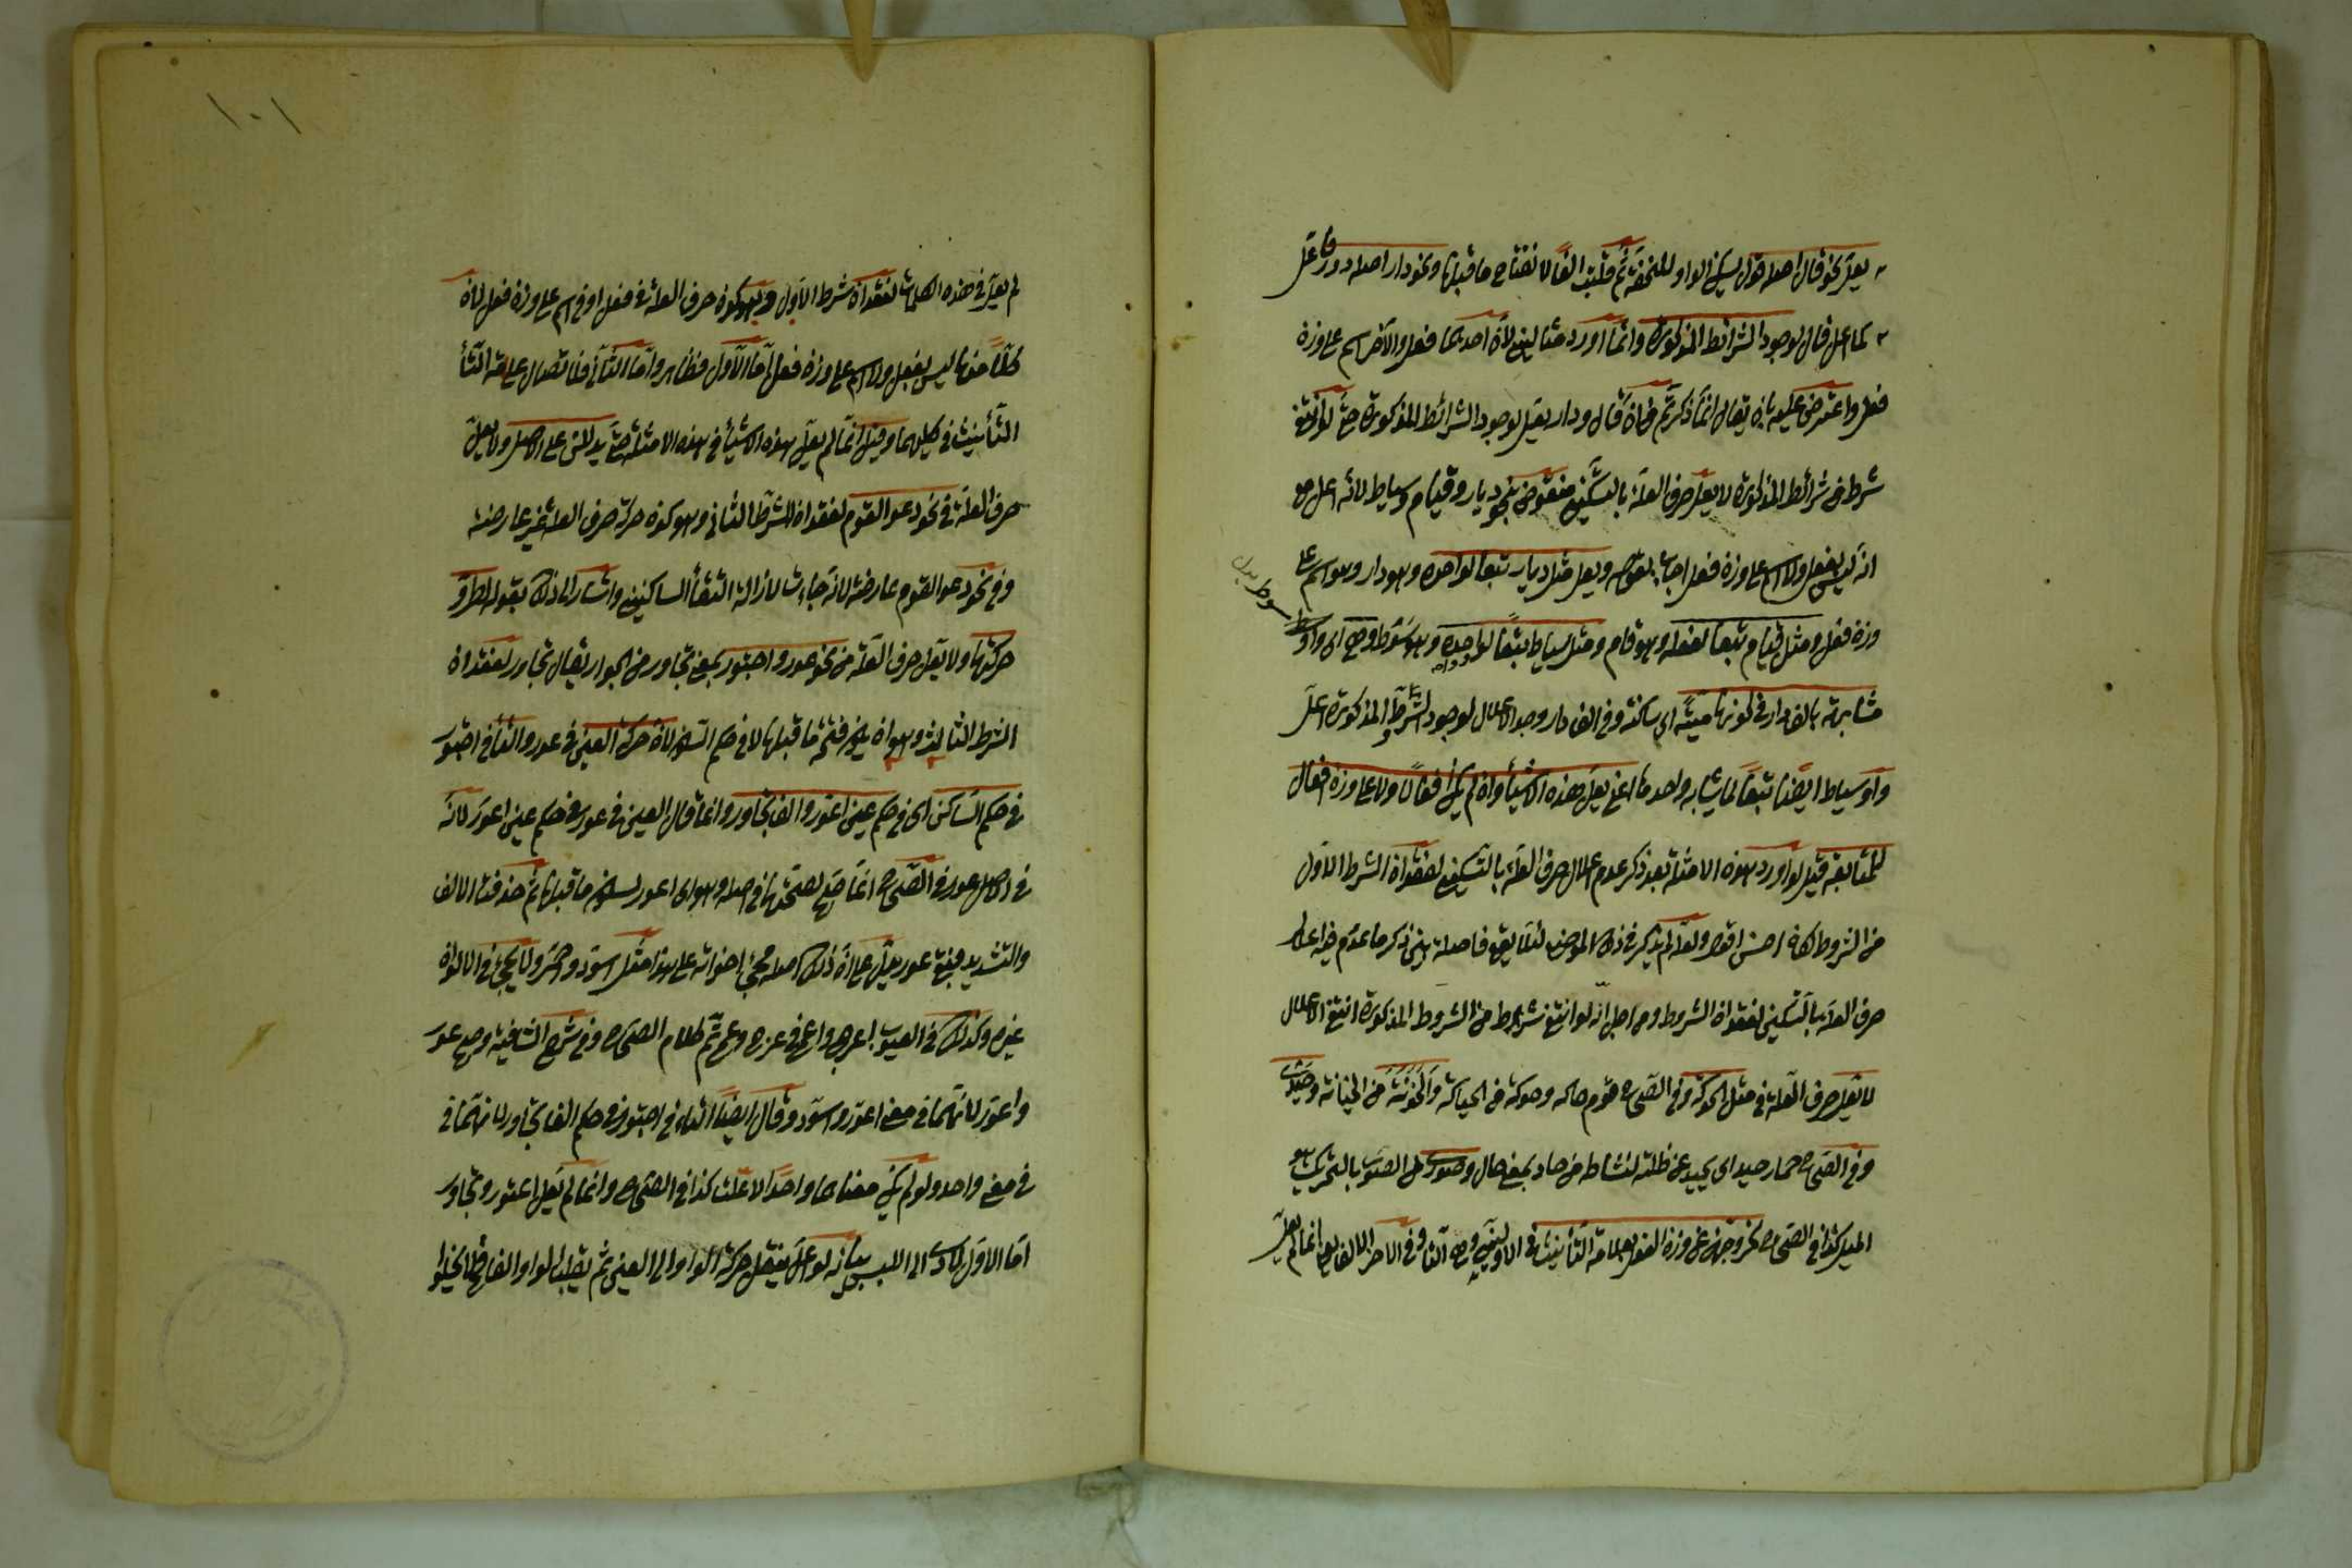 يعل نحو قال اصله قول يسكن الواو للخفة ثم قلبت الفا لانفتاح ما قبلها ونحو دار اصله دور فاعل
كما اعل قال لوجود الشرائط المذكورة وانما اورد مثالين لان احديهما فعل والاخر اسم على وزن
فعل واعترض عليه بان يقال انما ذكرتم من ان قال ودار يعل لوجود الشرائط المذكورة حتى لو انتفى
شرط من شرائط المذكورة لا يعل حرف العلة بالتسكين منقوض بنحو ديار وقيام وسياط لانه اعل مع
انه ليس بفعل ولا اسم على وزن فعل اجاب بقوله ويعل مثل ديار تبعا لواحده وهو دار وهو اسم على
وزن فعل ومثل قيام تبعا لفعله وهو قام ومثل سياط تبعا لواحده وهو سوط وهي اى واو سوط
مشابهة بالف دار في كونها ميتة اي ساكنة وفي الف دار وجد الاعلال لوجود الشرط المذكورة اعل
واو سياط ايضا تبعا لما يشابه واحدها اعني يعل هذه الاشياء وان لم يكن افعالا ولا على وزن افعال
للمتابعة قيل لو اورد هذه الامثلة بعد ذكر عدم اعلال حرف العلة بالتسكين لفقدان الشرط الاول
من الشروط لكان احسن اقول ولعله لم يذكر في ذلك الموضع لئلا يقع فاصلة بين ذكر ما عدم فيه اعلال
حرف العلة بالتسكين لفقدان الشروط ومن اجل انه لو انتفى شرط من الشروط المذكورة انتفى الاعلال
لا يعل حرف العلة في مثل الحوكة وفي الصحاح قوم حاكه وحوكة من الحياكة والخونة من الخيانة وحيدى
وفي الصحاح حمار حيدى اى يحيد عن ظله لنشاطه من حاد بمعنى مال وصورى من الصور بالتحريك هو
الميل كذا في الصحاح لخروجهن عن وزن الفعل بعلامة التأنيث في الاوليين وهي التاء وفي الاخر الالف انما لم يعل
سوط بدل
١٠١
لم يعل في هذه الكلمات لفقدان شرط الاول وهو كون حرف العلة في فعل او في اسم على وزن فعل لان
كلا منها ليس بفعل ولا اسم على وزن فعل اما الاول فظاهر واما الثاني فلاتصال علامة التأ
التأنيث في كليهما وقيل انما لم يعل هذه الاشياء في هذه الامثلة حتى يدللن على الاصل ولا يعل
حرف العلة في نحو دعوا القوم لفقدان الشرط الثاني وهو كون حركة حرف العلة غير عارضة
وفي نحو دعوا القوم عارضة لانه جاءت لازالة التقاء الساكنين واشار الى ذلك بقوله لطرو
حركتها ولا يعل حرف العلة من نحو عور واجتور بمعنى تجاور من الجوار يقال تجاور لفقدان
الشرط الثالث وهو ان يكون فتحة ما قبلها لا في حكم السكون لان حركة العين في عور والتاء في اجتور
في حكم الساكن اى في حكم عين اعور والف تجاور وانما قال العين في عور في حكم عين اعور لانه
في الاصل عور في الصحاح انما صح لصحتها في اصله وهو اى اعور لسكون ما قبلها ثم حذفت الالف
والتشديد فبقي عور يدل على ان ذلك اصله مجئ اخواته على هذا مثل اسود واحمر ولا يجئ في الالوان
غيره وكذلك في العيوب اعرج واعمى في عرج وعمى ثم كلام الصحاح وفي شرح الشافية وصح عور
واعور لانهما في معنى اعور واسود وقال ايضا التاء في اجتور في حكم الف تجاور لانهما في
في معنى واحد ولو لم يكن معناهما واحدا لاعلت كذا في الصحاح وانما لم يعل اعتور وتجاور
اما الاول لادى الى اللبس بيانه لو اعل ينقل حركة الواو الى العين ثم يقلب الواو الفا